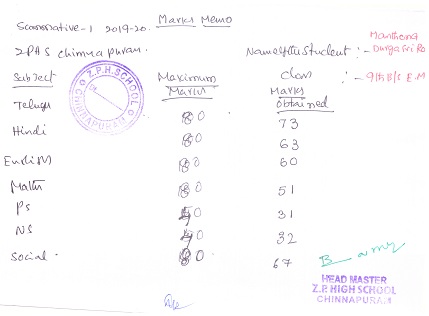 Marks Memo
Summative-1 2019-20.
ZPHS Chinnapuram.
Name of the Student :- Manthena Durga Sri Ra
Class :- 9th B/s E.M
Subject Maximum Marks Marks obtained
Z.P.H.SCHOOL
CHINNAPURAM
Telugu 80 73
Hindi 80 63
English 80 60
Maths 80 51
PS 40 31
NS 40 32
Social. 80 67
HEAD MASTER
Z.P. HIGH SCHOOL
CHINNAPURAM